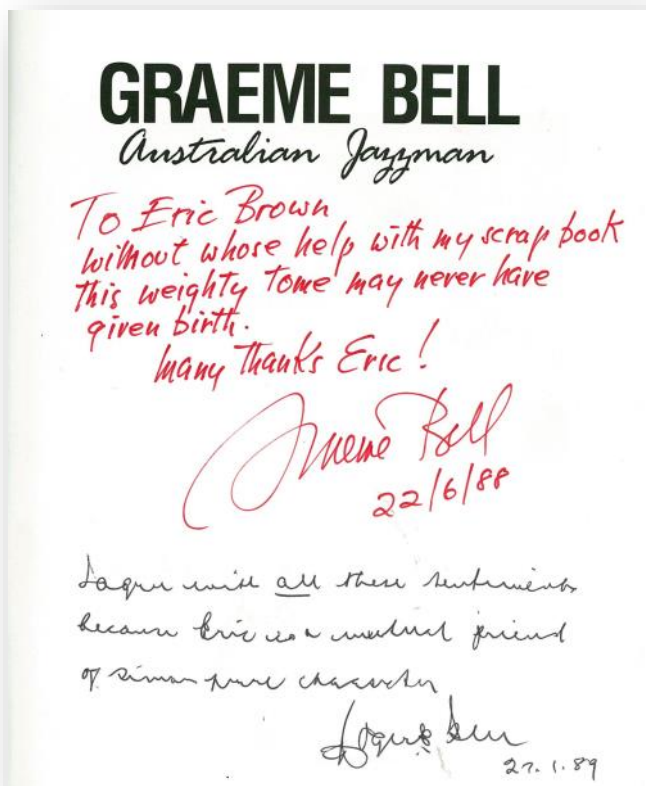 GRAEME BELL
Australian Jazzman
To Eric Brown
without whose help with my scrap book
this weighty tome may never have
given birth.
Many Thanks Eric!
Graeme Bell
22/6/88
I agree with all these sentiments
because Eric is a mutual friend
of simon pure character
Bell
27.1.89